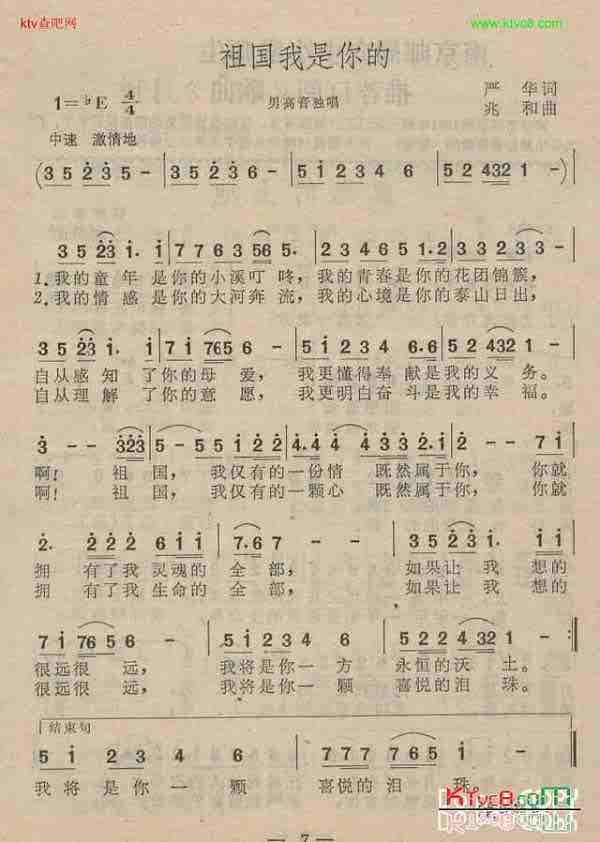 ktv查吧网
www.ktvc8.com
祖国我是你的
1=♭E 4/4
男高音独唱
严 华词
兆 和曲
中速 激情地
(3 5 2 3 5 - | 3 5 2 3 4 6 - | 5 1 2 3 4 6 - | 5 2 4 32 1 - )
3 5 23 1. 1 | 7 7 6 3 56 5. | 2 3 4 6 5 1.2 | 3 5 2 32 1 - |
1.我的童年是你的小溪叮咚,我的青春是你的花团锦簇,
2.我的情感是你的大河奔流,我的心境是你的泰山日出,
3 5 23 1. 1 | 7 1 7 65 6 - | 5 1 2 3 4 6. 6 | 5 2 4 32 1 - |
自从感知了你的母爱,我更懂得奉献是我的义务。
自从理解了你的意愿,我更明白奋斗是我的幸福。
3 - - 323 | 5 - 5 5 1 2 2 | 4. 4 4 3 3 2. 1 | 2 - - 7 1 |
啊! 祖国,我仅有的一份情既然属于你,你就
啊! 祖国,我仅有的一颗心既然属于你,你就
2. 2 2 2 6 1 1 | 7.6 7 - - | 3 5 2 3 1. 1 |
拥有了我灵魂的全部,如果让我想的
拥有了我生命的全部,如果让我想的
7 1 7 65 6 - | 5 1 2 3 4 6 - | 5 2 2 2 4 32 1 - :‖
很远很远,我将是你一方永恒的沃土。
很远很远,我将是你一颗喜悦的泪珠。
结束句
5 1 2 3 4 6 | 7 7 7 7 65 6 - | 1 - - - ‖
我将是你一颗喜悦的泪珠。
KTvc8.com
— 7 —